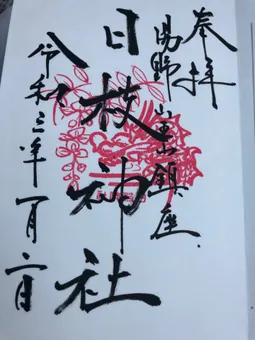 奉拝
湯野山王鎮座
日枝神社
令和三年一月二日